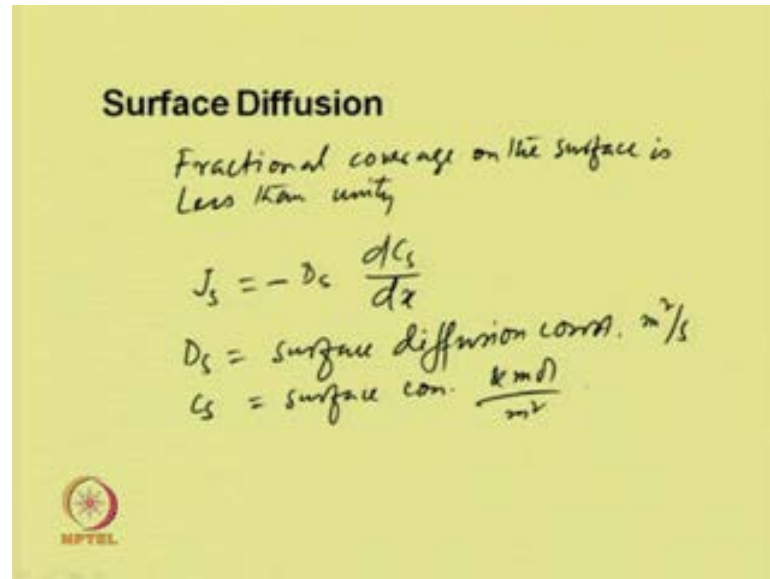 Surface Diffusion
Fractional coverage on the surface is
Less than unity
J_s = - D_s dC_s/dx
D_s = surface diffusion const. m²/s
C_s = surface con. kmol/m²
NPTEL